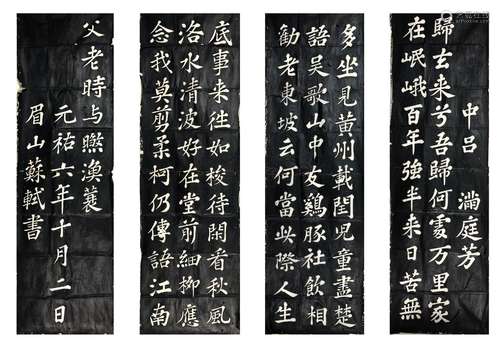 中呂 滿庭芳
歸去来兮吾歸何處万里家
在岷峨百年強半来日苦無
多坐見黃州載閏兒童盡楚
語吴歌山中友鷄豚社飲相
勸老東坡云何當此際人生
底事来往如梭待閑看秋風
洛水清波好在堂前細柳應
念我莫剪柔柯仍傳語江南
父老時与曬漁蓑
元祐六年十月二日
眉山蘇軾書